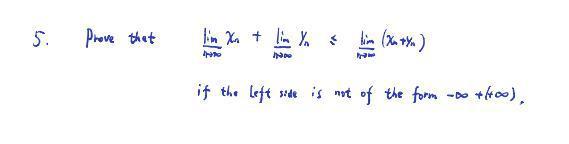 5. Prove that lim_{n→∞} xₙ + lim_{n→∞} yₙ ≤ lim_{n→∞} (xₙ+yₙ)
if the left side is not of the form -∞ +(+∞).